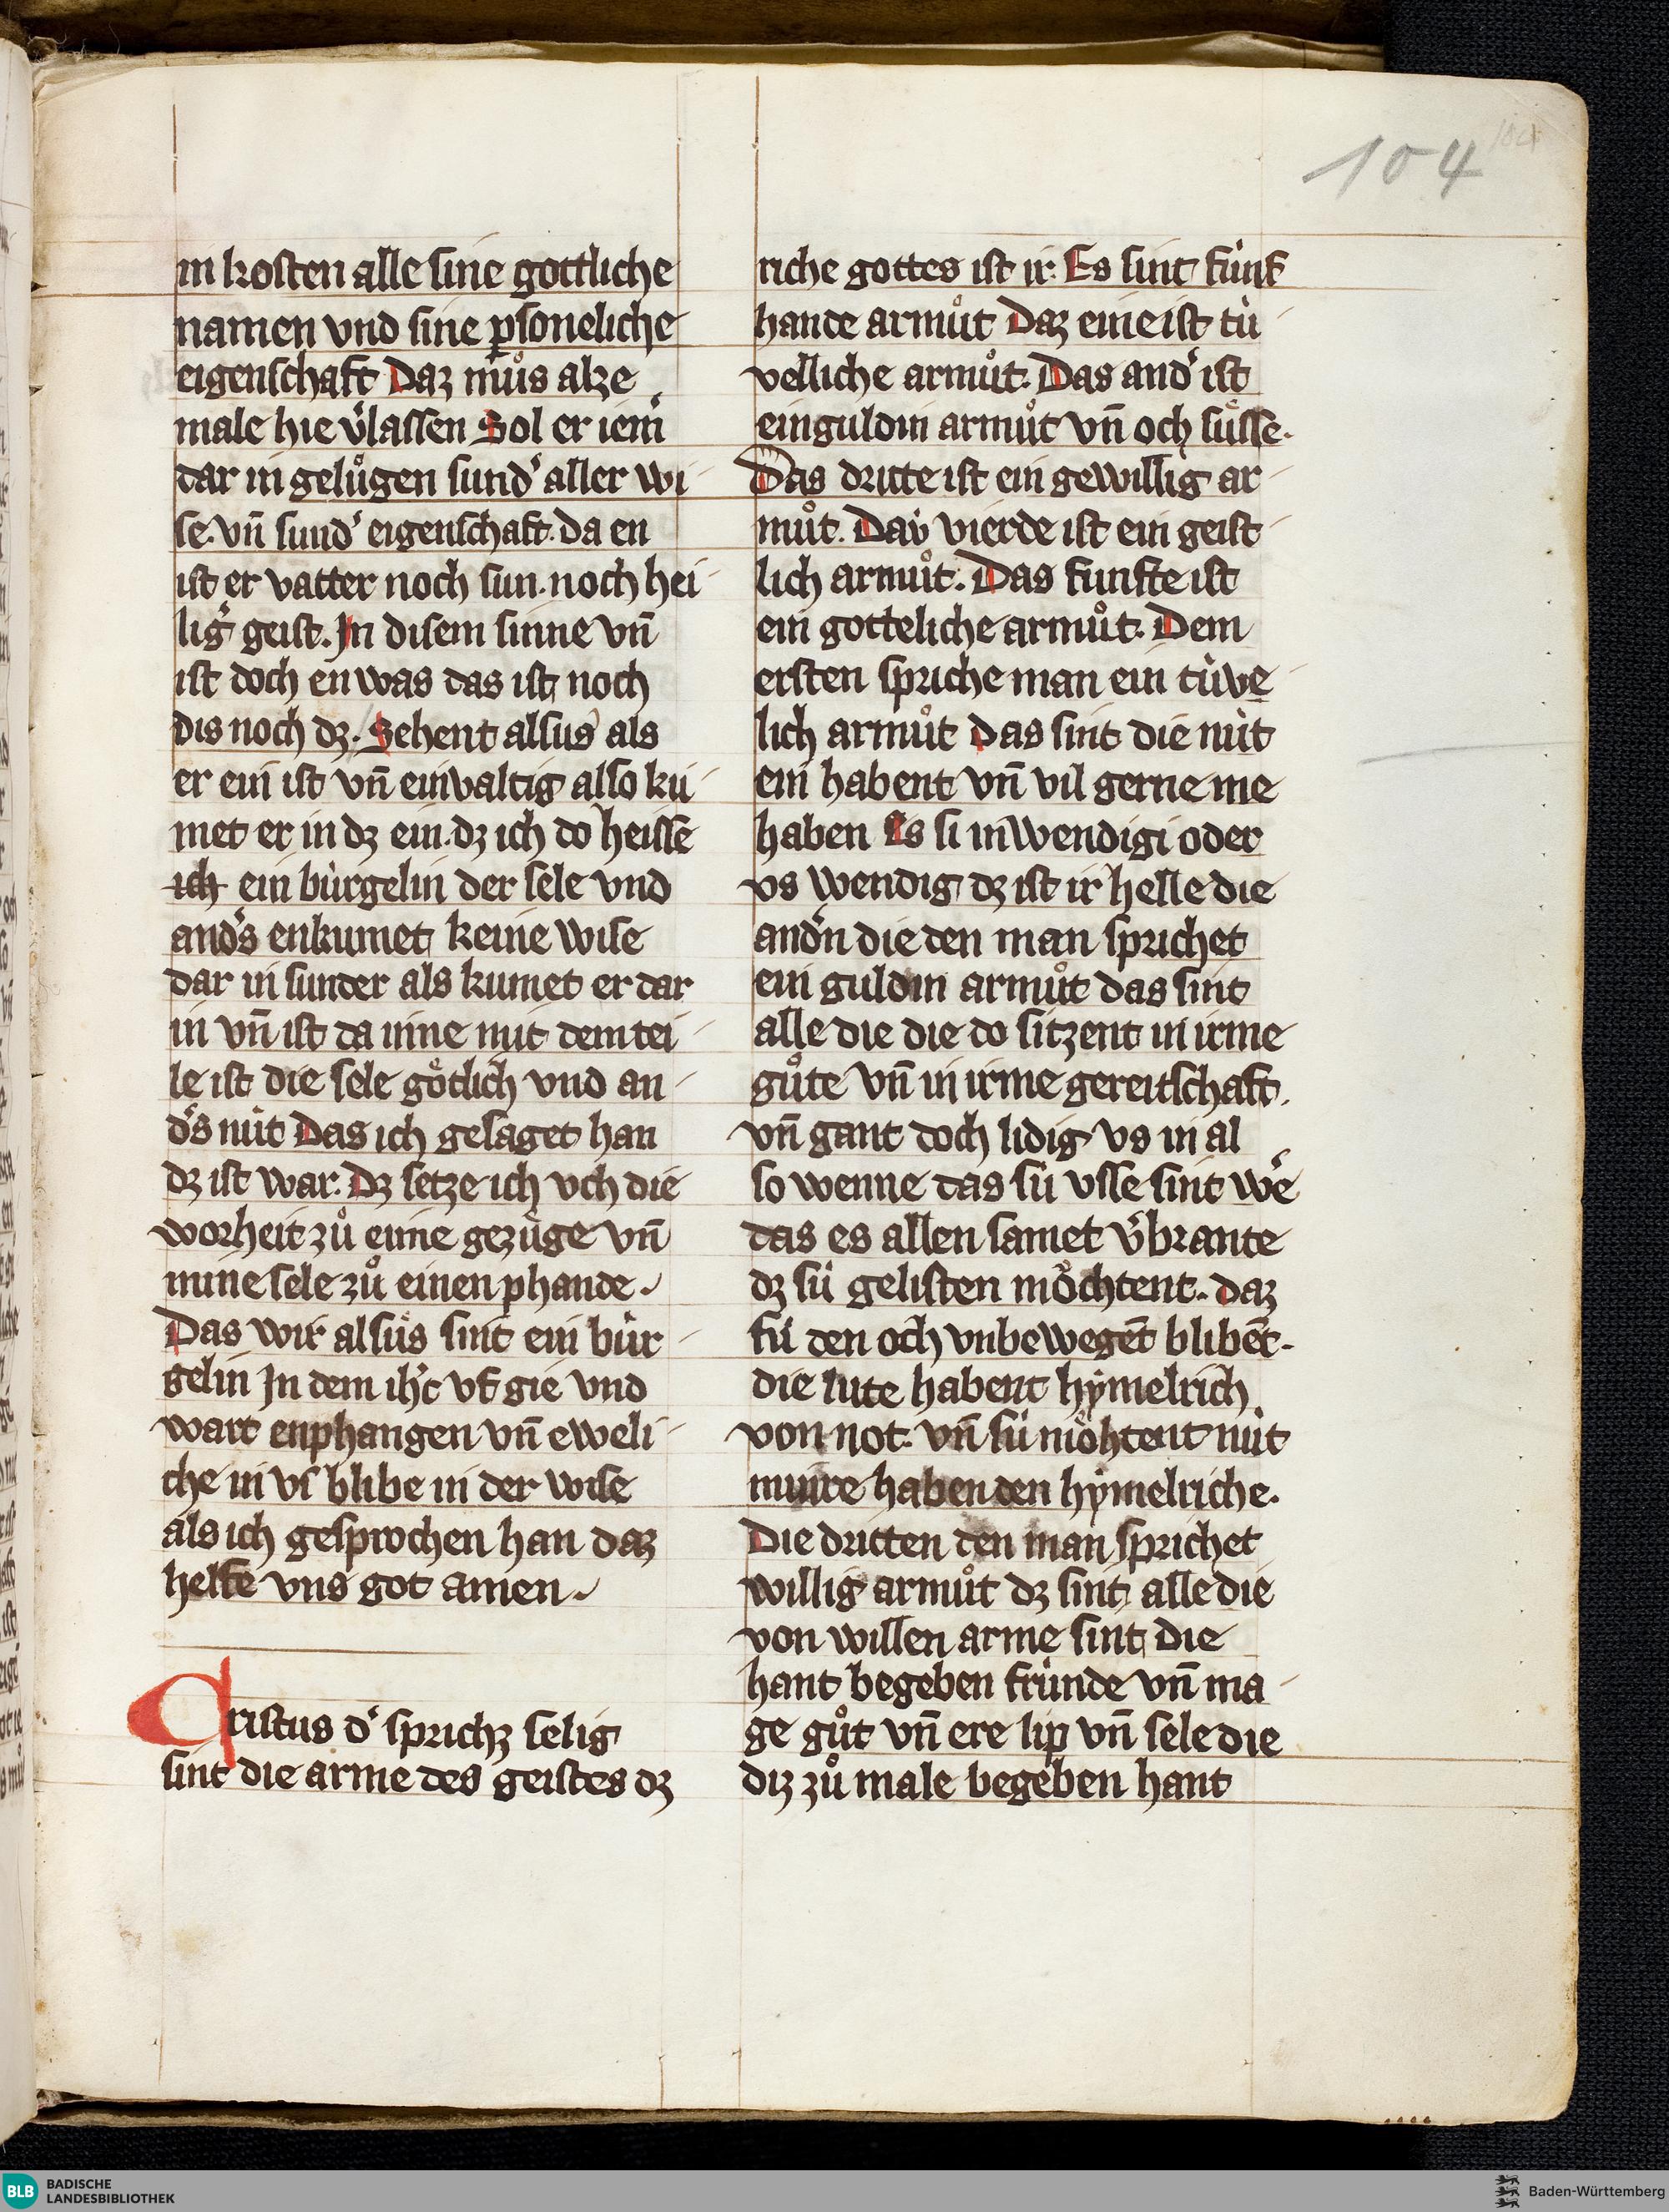 104
in kosten alle sine gottliche
namen vnd sine ꝑsoneliche
eigenschaft Daz můs alze
male hie v͛lassen Sol er iem͛
dar in gelůgen sund͛ aller wi
se. vn̄ sund͛ eigenschaft. Da en
ist er vatter noch sun. noch hei
lig͛ geist. Jn disem sinne vn̄
ist doch en was das ist noch
dis noch dz. Sehent alsus als
er ein ist vn̄ einvaltig also ku
met er in dz ein. dz ich do heisse
ich ein bùrgelin der sele vnd
and͛s enkumet keine wise
dar in sunder als kumet er dar
in vn̄ ist da inne mit dem tei
le ist die sele gỏtlich vnd an
d͛s nùt Das ich gesaget han
dz ist war. Dz setze ich vch die
worheit zů eime gezùge vn̄
mine sele zů einen phande.
Das wir alsus sint ein bùr
gelin Jn dem ih͛c vf gie vnd
wart enphangen vn̄ eweli
che in vs͛ blibe in der wise
als ich gesprochen han daz
helfe vns got amen.
Cristus d͛ sprichz selig
sint die arme des geistes dz
riche gottes ist ir. Es sint fùnf
hande armůt Daz eine ist tù
velliche armůt. Das and͛ ist
ein guldin armůt vn̄ och sůsse.
Das dritte ist ein gewillig ar
můt. Dav vierde ist ein geist
lich armůt. Das funfte ist
ein gotteliche armůt. Dem
ersten spriche man ein tùve
lich armůt Das sint die nùt
ein habent vn̄ vil gerne me
haben Es si inwendigi oder
vs wendig dz ist ir helle die
and͛n die den man sprichet
ein guldin armůt das sint
alle die die do sitzent in irme
gůte vn̄ in irme gereitschaft.
vn̄ gant doch lidig vs in al
so wenne das sù vsse sint we͛
das es allen samet v͛brante
dz sù gelisten mỏchtent. Daz
sù den och vnbewegēt blibēt.
die lute habent hymelrich
von not. vn̄ sù mỏhtent nùt
minre haben den hymelriche.
Die dritten den man sprichet
willig armůt dz sint alle die
von willen arme sint die
hant begeben frùnde vn̄ ma
ge gůt vn̄ ere lip vn̄ sele die
diz zů male begeben hant
BLB BADISCHE
LANDESBIBLIOTHEK
Baden-Württemberg